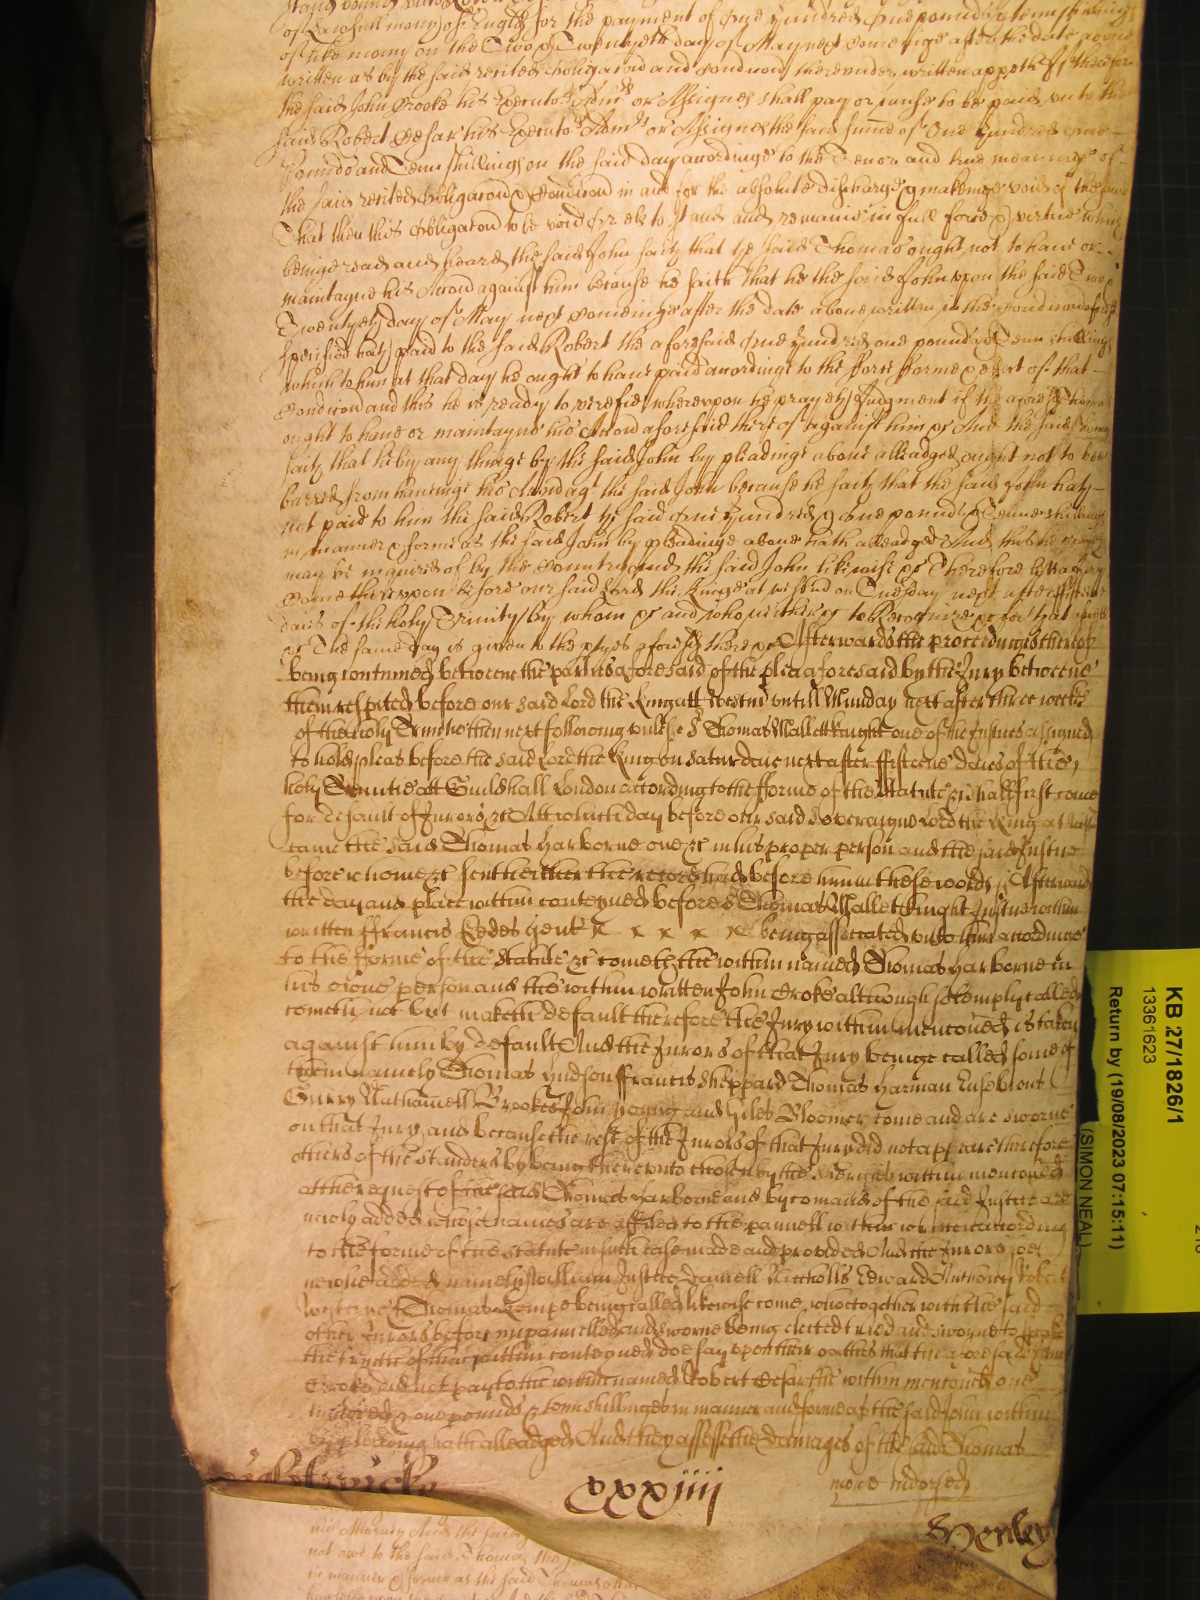 of Lawfull mony of Englds for the payment of One Hundred One pounds & tenn shillings
of like mony on the Two & Twentyeth day of May next comeinge after the date above
written as by the said recited obligacion and condicion thereunder written appeth If therefore
the said John Crooke his Executors Admrs or Assignes shall pay or cause to be paid unto the
said Robert Cesar his Executors Admrs or Assignes the said summe of One Hundred One
Pounds and Tenn shillings on the said day accordinge to the Tenor and true meaninge of
the said recited obligacion & Condicion in and for the absolute discharge & makeinge voide of the same
That then this obligacion to be void Or els to stand and remaine in full force & virtue which
beinge read and heard the said John saith that the said Thomas ought not to have or
maintayne his Accion against him because he saith that he the said John upon the said Two &
Twentyeth day of May next comeinge after the date above written in the condicion aforesaid
specified hath paid to the said Robert the aforesaid One Hundred one pounds & Tenn shillings
which to him at that day he ought to have paid accordinge to the force forme & effect of that
Condicion and this he is ready to verefie whereupon he prayeth Judgment if the aforesd Thomas
ought to have or maintayne his Accion aforesaid thereof against him &c And the said Thomas
saith that he by any thinge by the said John by pleadinge above alleadged ought not to bee
barred from haveinge his Accion agt the said John because he saith that the said John hath
not paid to him the said Robert the said One Hundred & One pounds & Tenne shillings
in manner & forme as the said John by pleadinge above hath alleadged And this he prayes
may be inquired of by the Country And the said John likewise &c Therefore lett a Jury
come thereupon before our said Lord the Kinge at Westmr on Tuesday next after fifteene
daies of the holy Trinity by whom &c and who neither &c to Recognize &c for that aswell
&c The same day is given to the ptyes aforesd there &c Afterwards the proceedings thereof
being continued betweene the parties aforesaid of the plea aforesaid by the Jury betweene
them respited before our said Lord the King att Westmr untill Munday next after three weeks
of the holy Trinitie then next following unlesse Sr Thomas Mallett knight one of the Justices assigned
to hold pleas before the said Lord the King on Saturdaie next after fifteene daies of the
holy Trinitie att Guildhall London according to the fforme of the Statute &c shall first come
for default of Jurors &c Att which day before our said Soveraigne Lord the King at Westmr
came the said Thomas Harborne one &c in his proper person and the said Justice
before whome &c sent hither the record had before him in these words Afterward
the day and place within conteyned before Sr Thomas Mallett knight Justice within
written ffrancis Eedes gent x x x x x being associated unto him according
to the fforme of the Statute &c cometh the within named Thomas Harborne in
his owne person and the within written John Croke although solemply called
cometh not but maketh default therefore the Jury within menconed is taken
against him by default And the Jurors of that Jury beinge called some of
them namely Thomas Hudson ffrancis Sheppard Thomas Harman Eusebious
Gurry Nathaniell Brookes John Young and Giles Bloomer come and are sworne
on that Jury and because the rest of the Jurors of that Jury did not appeare therefore
others of the standers by being thereunto chosen by the Sheriffes within menconed
at the request of the said Thomas Harborne and by comand of the said Justice are
newly added whose names are affiled to the pannell within written according
to the forme of the statute in such case made and provided And the Jurors soe
newlie added namely William Justice Daniell Niccholls Edward Anthony Robert
Westerne & Thomas Kempe being called likewise come who together with the said
other Jurors before impannelled and sworne being elected tried and sworne to speake
the truth of the within conteyned doe say upon their oathes that the aforesaid John
Croke did not pay to the within named Robert Cesar the within menconed one
hundred & one pounds & tenn shillings in manner and forme as the said John within
by pleading hath alleadged And they assesse the damages of the said Thomas
more indorsed
xxxiiij
Henley
his Attorney And the said
not owe to the said Thomas the
in manner & forme as the said Thomas
KB 27/1826/1
13361623
Return by (19/08/2023 07:15:11)
(SIMON NEAL)